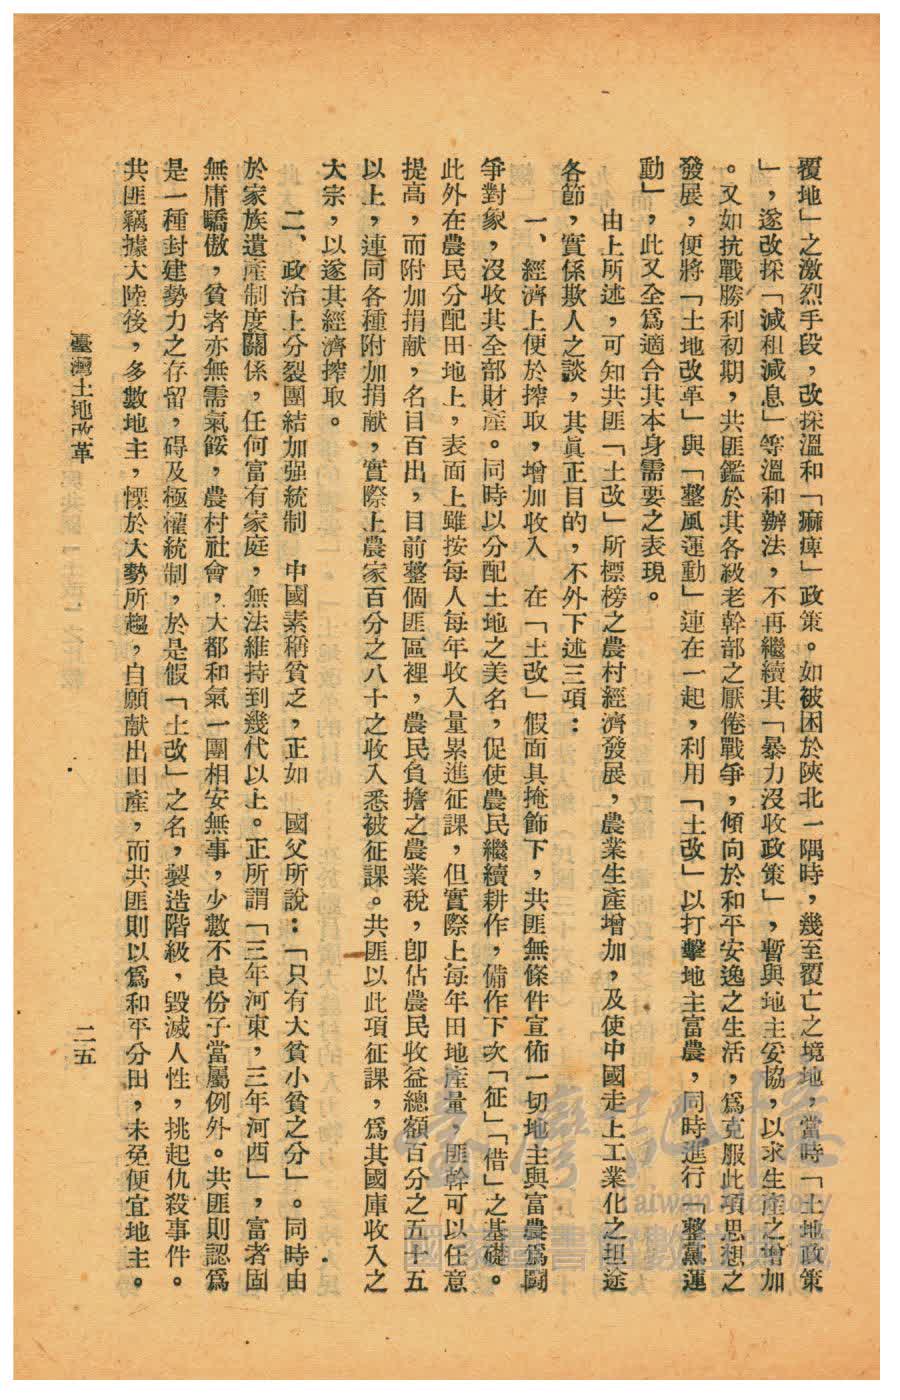 覆地」之激烈手段，改採溫和「痲痺」政策。如被困於陝北一隅時，幾至覆亡之境地，當時「土地政策
」，遂改採「減租減息」等溫和辦法，不再繼續其「暴力沒收政策」，暫與地主妥協，以求生產之增加
。又如抗戰勝利初期，共匪鑑於其各級老幹部之厭倦戰爭，傾向於和平安逸之生活，爲克服此項思想之
發展，便將「土地改革」與「整風運動」連在一起，利用「土改」以打擊地主富農，同時進行「整黨運
動」，此又全爲適合其本身需要之表現。
由上所述，可知共匪「土改」所標榜之農村經濟發展，農業生產增加，及使中國走上工業化之坦途
各節，實係欺人之談，其眞正目的，不外下述三項：
一、經濟上便於搾取，增加收入　在「土改」假面具掩飾下，共匪無條件宣佈一切地主與富農爲鬪
爭對象，沒收其全部財產。同時以分配土地之美名，促使農民繼續耕作，備作下次「征」「借」之基礎。
此外在農民分配田地上，表面上雖按每人每年收入量累進征課，但實際上每年田地產量，匪幹可以任意
提高，而附加捐献，名目百出，目前整個匪區裡，農民負擔之農業稅，卽佔農民收益總額百分之五十五
以上，連同各種附加捐献，實際上農家百分之八十之收入悉被征課。共匪以此項征課，爲其國庫收入之
大宗，以遂其經濟搾取。
二、政治上分裂團結加强統制　中國素稱貧乏，正如　國父所說：「只有大貧小貧之分」。同時由
於家族遺產制度關係，任何富有家庭，無法維持到幾代以上。正所謂「三年河東，三年河西」，富者固
無庸驕傲，貧者亦無需氣餒，農村社會，大都和氣一團相安無事，少數不良份子當屬例外。共匪則認爲
是一種封建勢力之存留，碍及極權統制，於是假「土改」之名，製造階級，毀滅人性，挑起仇殺事件。
共匪竊據大陸後，多數地主，慄於大勢所趨，自願献出田產，而共匪則以爲和平分田，未免便宜地主。
臺灣土地改革
二五
臺灣記憶
Taiwan Memory